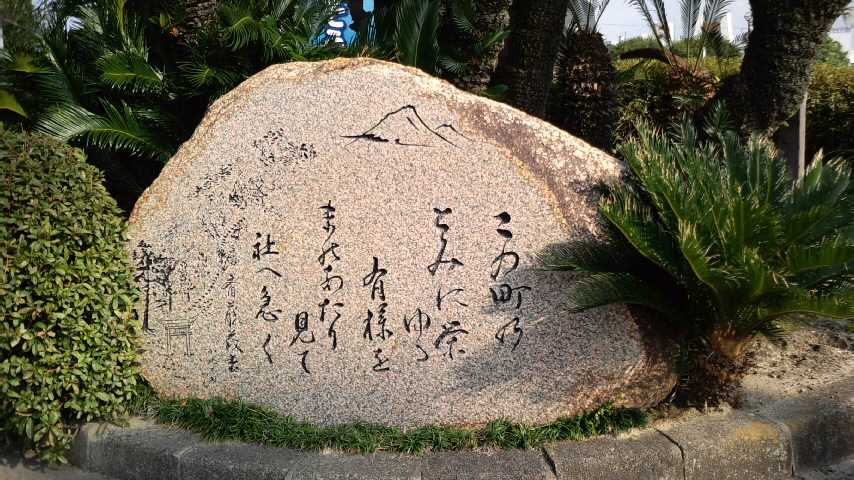 この町の
とみに栄
ゆる
有様を
まのあたり
見て
社へ急ぐ